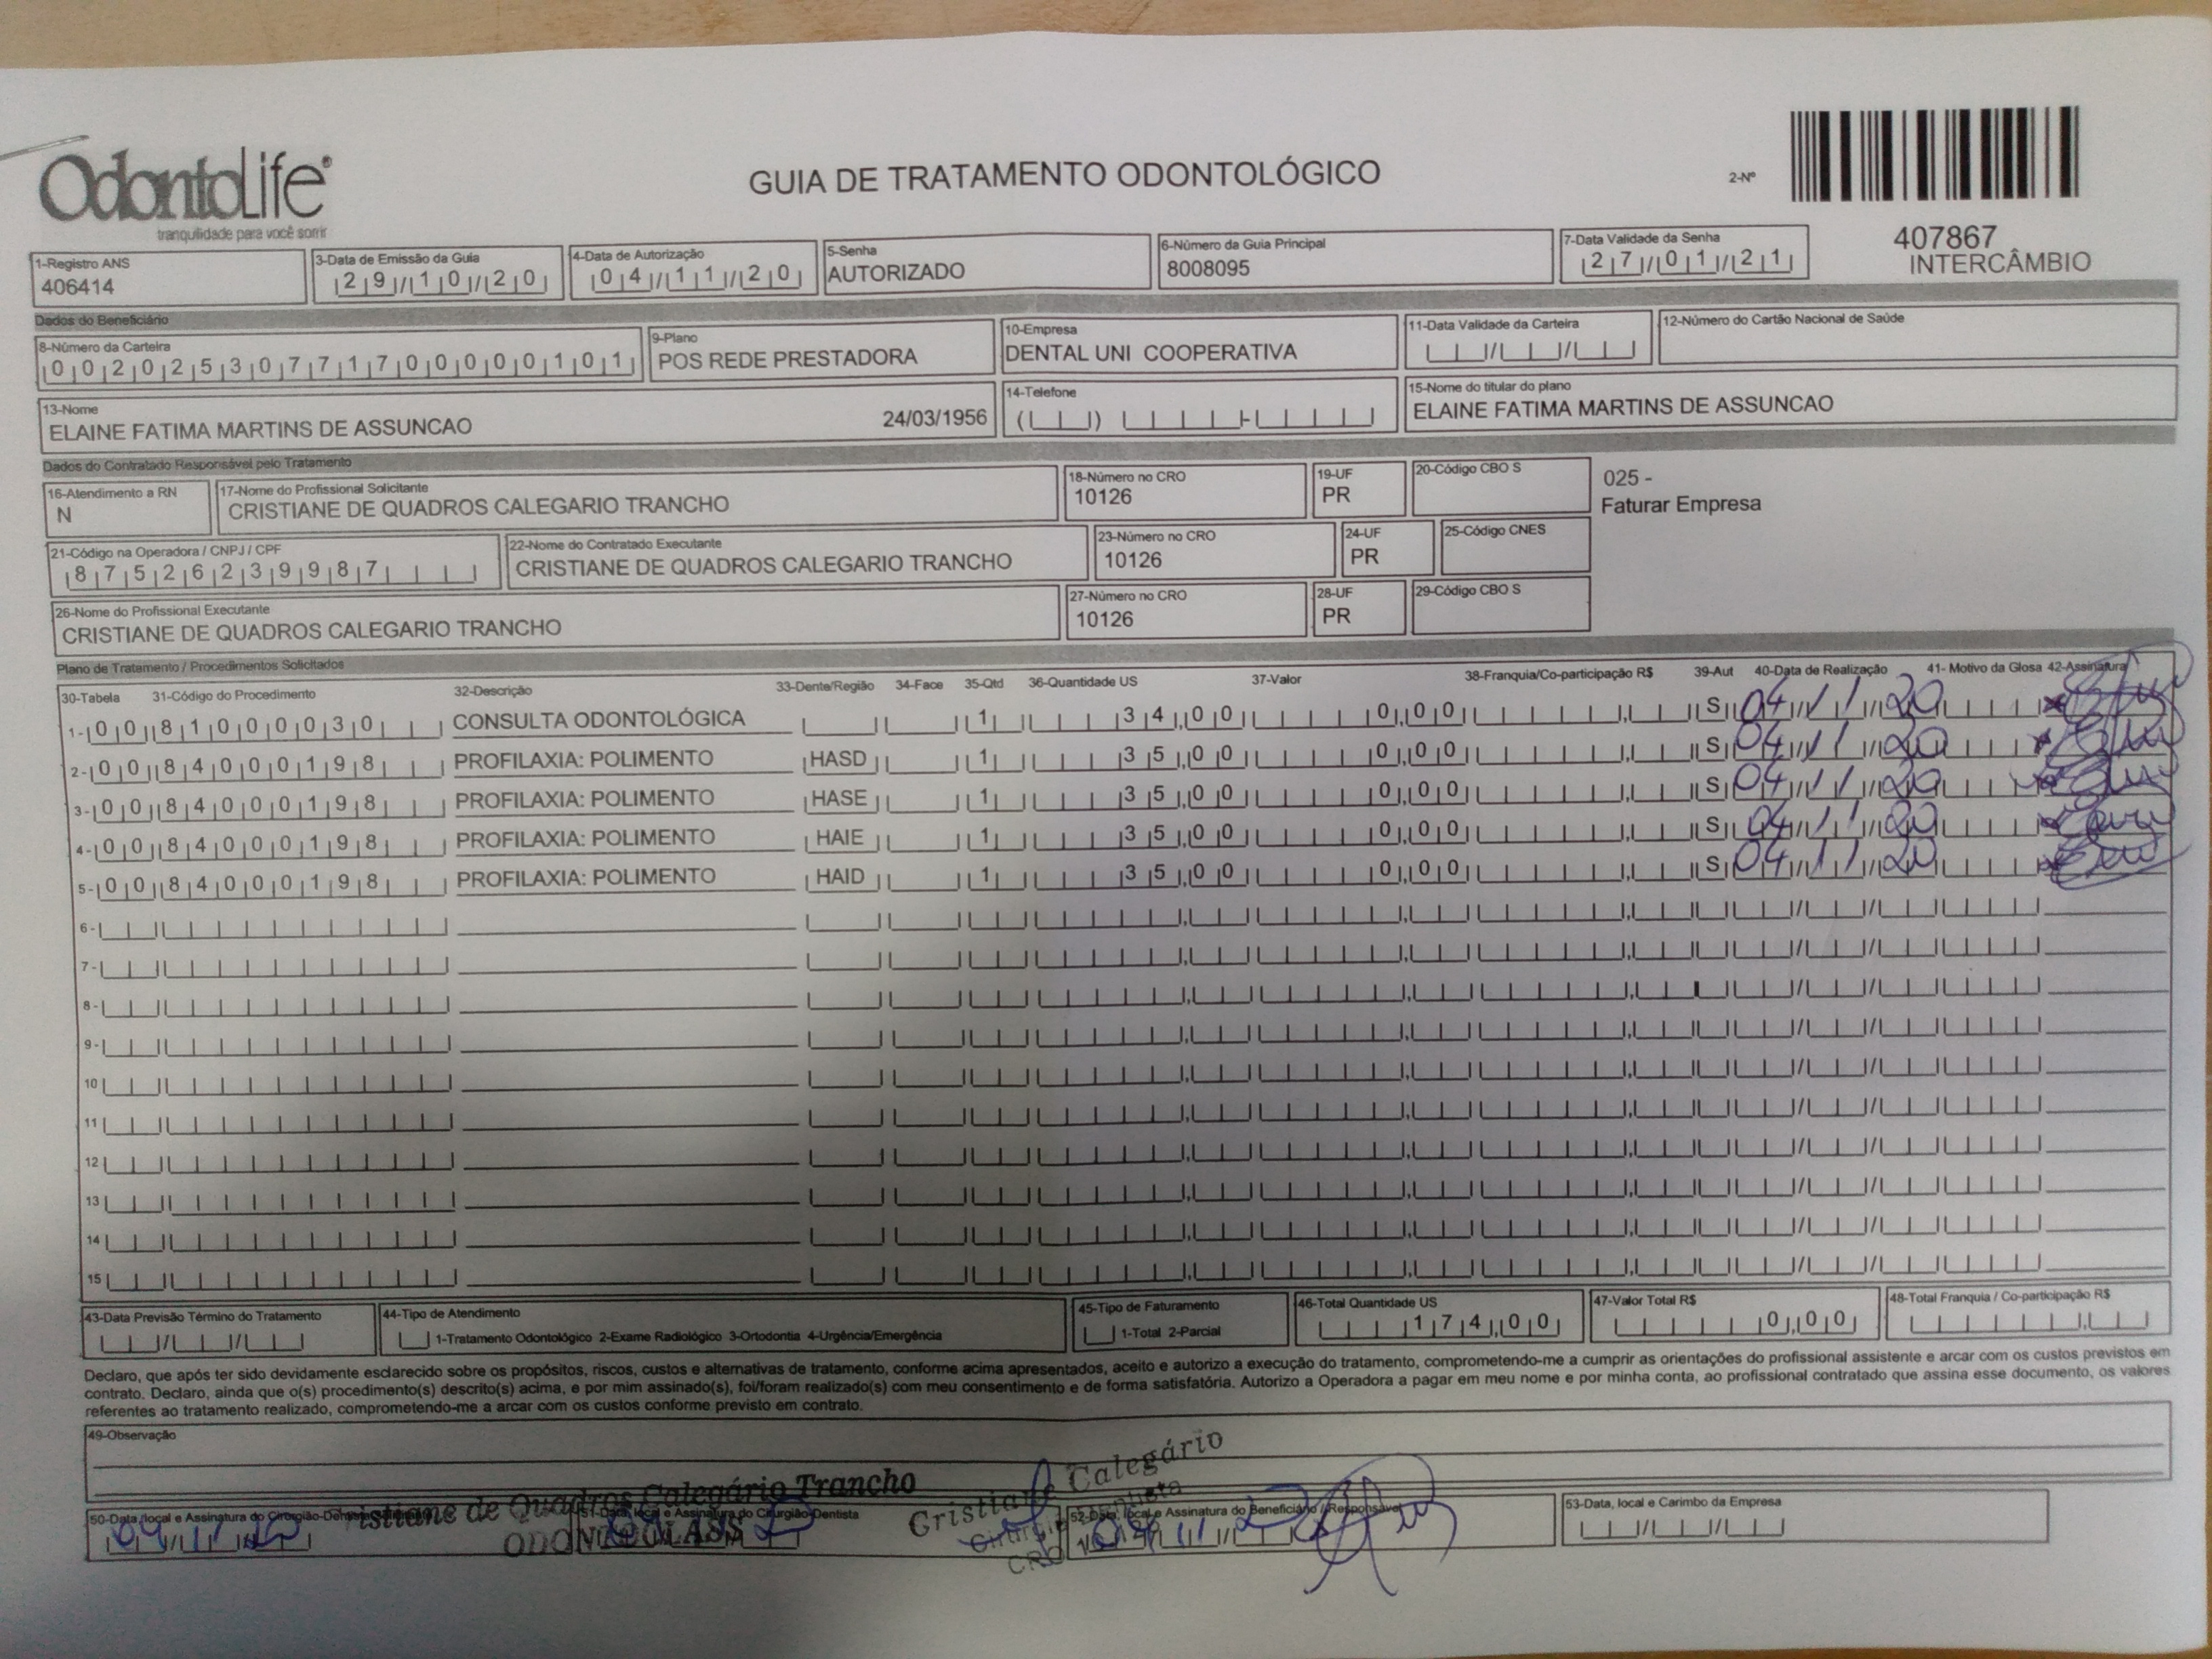 OdontoLife®
tranquilidade para você sorrir
GUIA DE TRATAMENTO ODONTOLÓGICO
2-Nº
407867
INTERCÂMBIO
1-Registro ANS
406414
3-Data de Emissão da Guia
29/10/20
4-Data de Autorização
04/11/20
5-Senha
AUTORIZADO
6-Número da Guia Principal
8008095
7-Data Validade da Senha
27/01/21
Dados do Beneficiário
8-Número da Carteira
00202530771700000101
9-Plano
POS REDE PRESTADORA
10-Empresa
DENTAL UNI COOPERATIVA
11-Data Validade da Carteira
12-Número do Cartão Nacional de Saúde
13-Nome
ELAINE FATIMA MARTINS DE ASSUNCAO 24/03/1956
14-Telefone
15-Nome do titular do plano
ELAINE FATIMA MARTINS DE ASSUNCAO
Dados do Contratado Responsável pelo Tratamento
16-Atendimento a RN
N
17-Nome do Profissional Solicitante
CRISTIANE DE QUADROS CALEGARIO TRANCHO
18-Número no CRO
10126
19-UF
PR
20-Código CBO S
025 -
Faturar Empresa
21-Código na Operadora / CNPJ / CPF
87526239987
22-Nome do Contratado Executante
CRISTIANE DE QUADROS CALEGARIO TRANCHO
23-Número no CRO
10126
24-UF
PR
25-Código CNES
26-Nome do Profissional Executante
CRISTIANE DE QUADROS CALEGARIO TRANCHO
27-Número no CRO
10126
28-UF
PR
29-Código CBO S
Plano de Tratamento / Procedimentos Solicitados
30-Tabela 31-Código do Procedimento 32-Descrição 33-Dente/Região 34-Face 35-Qtd 36-Quantidade US 37-Valor 38-Franquia/Co-participação R$ 39-Aut 40-Data de Realização 41- Motivo da Glosa 42-Assinatura
1- 00 81000030 CONSULTA ODONTOLÓGICA 1 34,00 0,00 S 04/11/20
2- 00 84000198 PROFILAXIA: POLIMENTO HASD 1 35,00 0,00 S 04/11/20
3- 00 84000198 PROFILAXIA: POLIMENTO HASE 1 35,00 0,00 S 04/11/20
4- 00 84000198 PROFILAXIA: POLIMENTO HAIE 1 35,00 0,00 S 04/11/20
5- 00 84000198 PROFILAXIA: POLIMENTO HAID 1 35,00 0,00 S 04/11/20
6-
7-
8-
9-
10
11
12
13
14
15
43-Data Previsão Término do Tratamento
44-Tipo de Atendimento
1-Tratamento Odontológico 2-Exame Radiológico 3-Ortodontia 4-Urgência/Emergência
45-Tipo de Faturamento
1-Total 2-Parcial
46-Total Quantidade US
174,00
47-Valor Total R$
0,00
48-Total Franquia / Co-participação R$
Declaro, que após ter sido devidamente esclarecido sobre os propósitos, riscos, custos e alternativas de tratamento, conforme acima apresentados, aceito e autorizo a execução do tratamento, comprometendo-me a cumprir as orientações do profissional assistente e arcar com os custos previstos em
contrato. Declaro, ainda que o(s) procedimento(s) descrito(s) acima, e por mim assinado(s), foi/foram realizado(s) com meu consentimento e de forma satisfatória. Autorizo a Operadora a pagar em meu nome e por minha conta, ao profissional contratado que assina esse documento, os valores
referentes ao tratamento realizado, comprometendo-me a arcar com os custos conforme previsto em contrato.
49-Observação
istiane de Quadros Calegário Trancho
Cristiane Calegário
50-Data, local e Assinatura do Cirurgião-Dentista
04/11/20
51-Data, local e Assinatura do Cirurgião-Dentista
52-Data, local e Assinatura do Beneficiário / Responsável
04/11/20
53-Data, local e Carimbo da Empresa